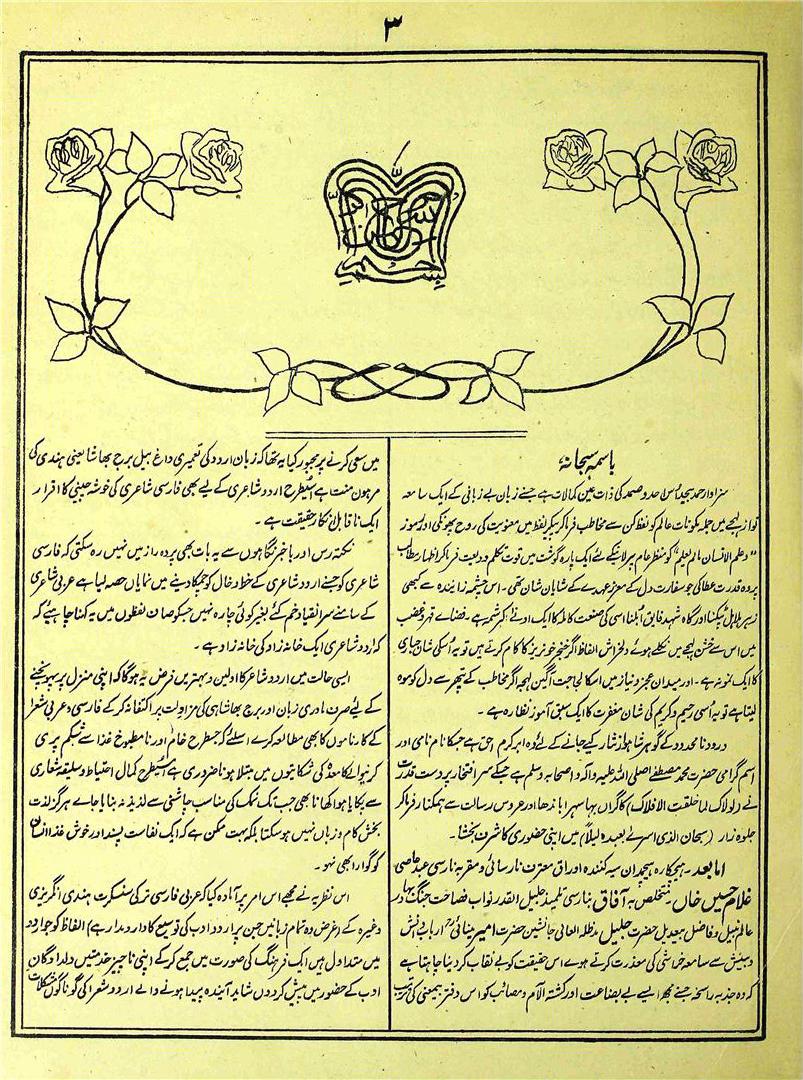 ۳
بسم اللہ الرحمن الرحیم
باسمہٖ سبحانہٗ
سزاوار حمد بیحد اُس احد و صمد کی ذات عین کمالات ہے جسنے زبان بے زبانی کے ایک سامعہ
نواز لہجے میں جملہ مکونات عالم کو لفظ کن سے مخاطب فرما کر پیکر لفظ میں معنویت کی روح پھونکی اور رموز
"وعلم الانسان مالم یعلم" کو منظر عام پر لانیکے لئے ایک پارہ گوشت میں قوت تکلم ودیعت فرما کر اظہار مطالب
پر وہ قدرت عطا کی جو سفارت دل کے معزز عہدے کے شایان شان تھی۔ اس چشمہ زایندہ سے کبھی
زہر ہلاہل ٹپکنا اور گاہ شہد فایق اُبلنا اسی کی صنعت کاملہ کا ایک ادنےٰ کرشمہ ہے۔ فضاے قہر و غضب
میں اس سے خشن لہجے میں نکلے ہوئے دلخراش الفاظ اگر خنجر خونریز کا کام کرتے ہیں تو یہ اُسکی شان جباری
کا ایک نمونہ ہے۔ اور میدان عجز و نیاز میں اسکا لجاجت آگین لہجہ اگر مخاطب کے پتھر سے دل کو موہ
لیتا ہے تو یہ اُسی رحیم و کریم کی شان مغفرت کا ایک سبق آموز نظارہ ہے۔
درود نامحدود کے گوہر شاہوار نثار کیے جانے کے لئے وہ ابر کرم احق ہے جسکا نام نامی اور
اسم گرامی حضرت محمد مصطفےٰ صلی اللہ علیہ وآلہ واصحابہ وسلم ہے جسکے سر افتخار پر دست قدرت
نے (لولاک لما خلقت الافلاک) کا گراں بہا سہرا باندھا اور عروس رسالت سے ہمکنار فرما کر
جلوہ زار (سبحان الذی اسریٰ بعبدہ لیلاً) میں اپنی حضوری کا شرف بخشا۔
اما بعد۔ ہیچکارہ ہیچمدان سیہ کنندہ اوراق معترف نارسائی و مقر بہ نارسی عبد عاصی
غلام حسین خاں متخلص بہ آفاق بنارسی تلمیذ جلیل القدر نواب فصاحت جنگ بہادر
عالم نبیل و فاضل بیعدیل حضرت جلیل مدظلہ العالی جانشین حضرت امیر مینائی ارباب دانش
و بینش سے سامعہ خراشی کی معذرت کرتے ہوے اس حقیقت کو بے نقاب کر دینا چاہتا ہے
کہ وہ جذبہ راسخہ جسنے مجھ ایسے بے بضاعت اور کشتہ آلام و مصائب کو اس دفتر بیمعنی کی ترتیب
میں سعی کرنے پر مجبور کیا یہ تھا کہ زبان اردو کی تعمیری داغ بیل برج بھاشا یعنی ہندی کی
مرہون منت ہے اُسیطرح اردو شاعری کے لیے بھی فارسی شاعری کی خوشہ چینی کا اقرار
ایک ناقابل انکار حقیقت ہے۔
نکتہ رس اور باخبر نگاہوں سے یہ بات بھی پردہ راز میں نہیں رہ سکتی کہ فارسی
شاعری کو جسنے اردو شاعری کے خط و خال کو چمکا دینے میں نمایاں حصہ لیا ہے عربی شاعری
کے سامنے سر انقیاد خم کئے بغیر کوئی چارہ نہیں جسکو صاف لفظوں میں یہ کہنا چاہیے کہ
کہ اُردو شاعری ایک خانہ زاد کی خانہ زاد ہے۔
ایسی حالت میں اردو شاعر کا اولین و بہترین فرض یہ ہوگا کہ اپنی منزل پر پہونچنے
کے لیئے صرف مادری زبان اور برج بھاشا ہی کی مزاولت پر اکتفا نہ کر کے فارسی و عربی شعرا
کے کارناموں کا بھی مطالعہ کرے اسلئے کہ جسطرح خام اور نامطبوخ غذا سے شکم پری
کرنیوالے کا معدہ کی شکایتوں میں مبتلا ہونا ضروری ہے اُسیطرح کمال احتیاط و سلیقہ شعاری
سے پکایا ہوا کھانا بھی جب تک نمک کی مناسب چاشنی سے لذیذ نہ بنایا جاے ہرگز لذت
بخش کام و زباں نہیں ہو سکتا بلکہ بہت ممکن ہے کہ ایک نفاست پسند اور خوش غذا انسان
کو گوارا بھی نہو۔
اس نظریہ نے مجھے اس امر پر آمادہ کیا کہ عربی فارسی ترکی سنسکرت ہندی انگریزی
وغیرہ کے (غرض وہ تمام زبانیں جن پر اردو ادب کی توسیع کا دار و مدار ہے) الفاظ کو جو اردو
میں متداول ہیں ایک فرہنگ کی صورت میں جمع کر کے اپنی ناچیز خدمتیں دلدادگان
ادب کے حضور میں پیش کردوں شاید آیندہ پیدا ہونے والے اردو شعرا کی گوناگوں مشکلات